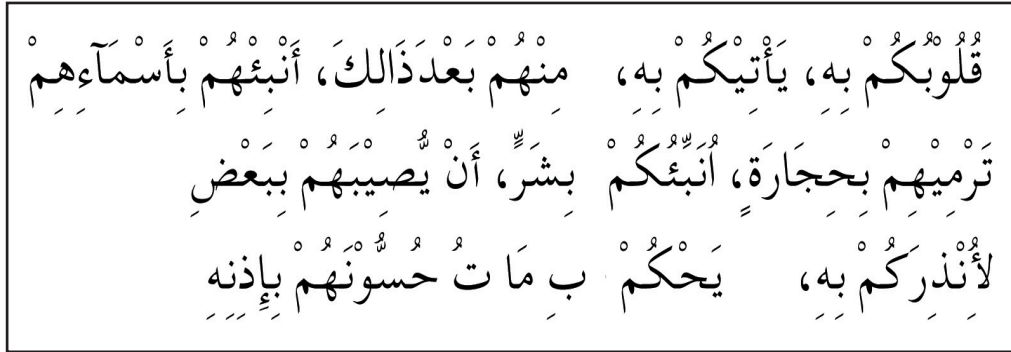 قُلُوْبُكُمْ بِهِ، يَأْتِيْكُمْ بِهِ، مِنْهُمْ بَعْدَذَالِكَ، أَنْبِئْهُمْ بِأَسْمَآءِهِمْ
تَرْمِيْهِمْ بِحِجَارَةٍ، اُنَبِّئُكُمْ بِشَرٍّ، أَنْ يُّصِيْبَهُمْ بِبَعْضِ
لأُنْذِرَكُمْ بِهِ، يَحْكُمْ بِ مَا تُ حُسُّوْنَهُمْ بِإِذِنِهِ